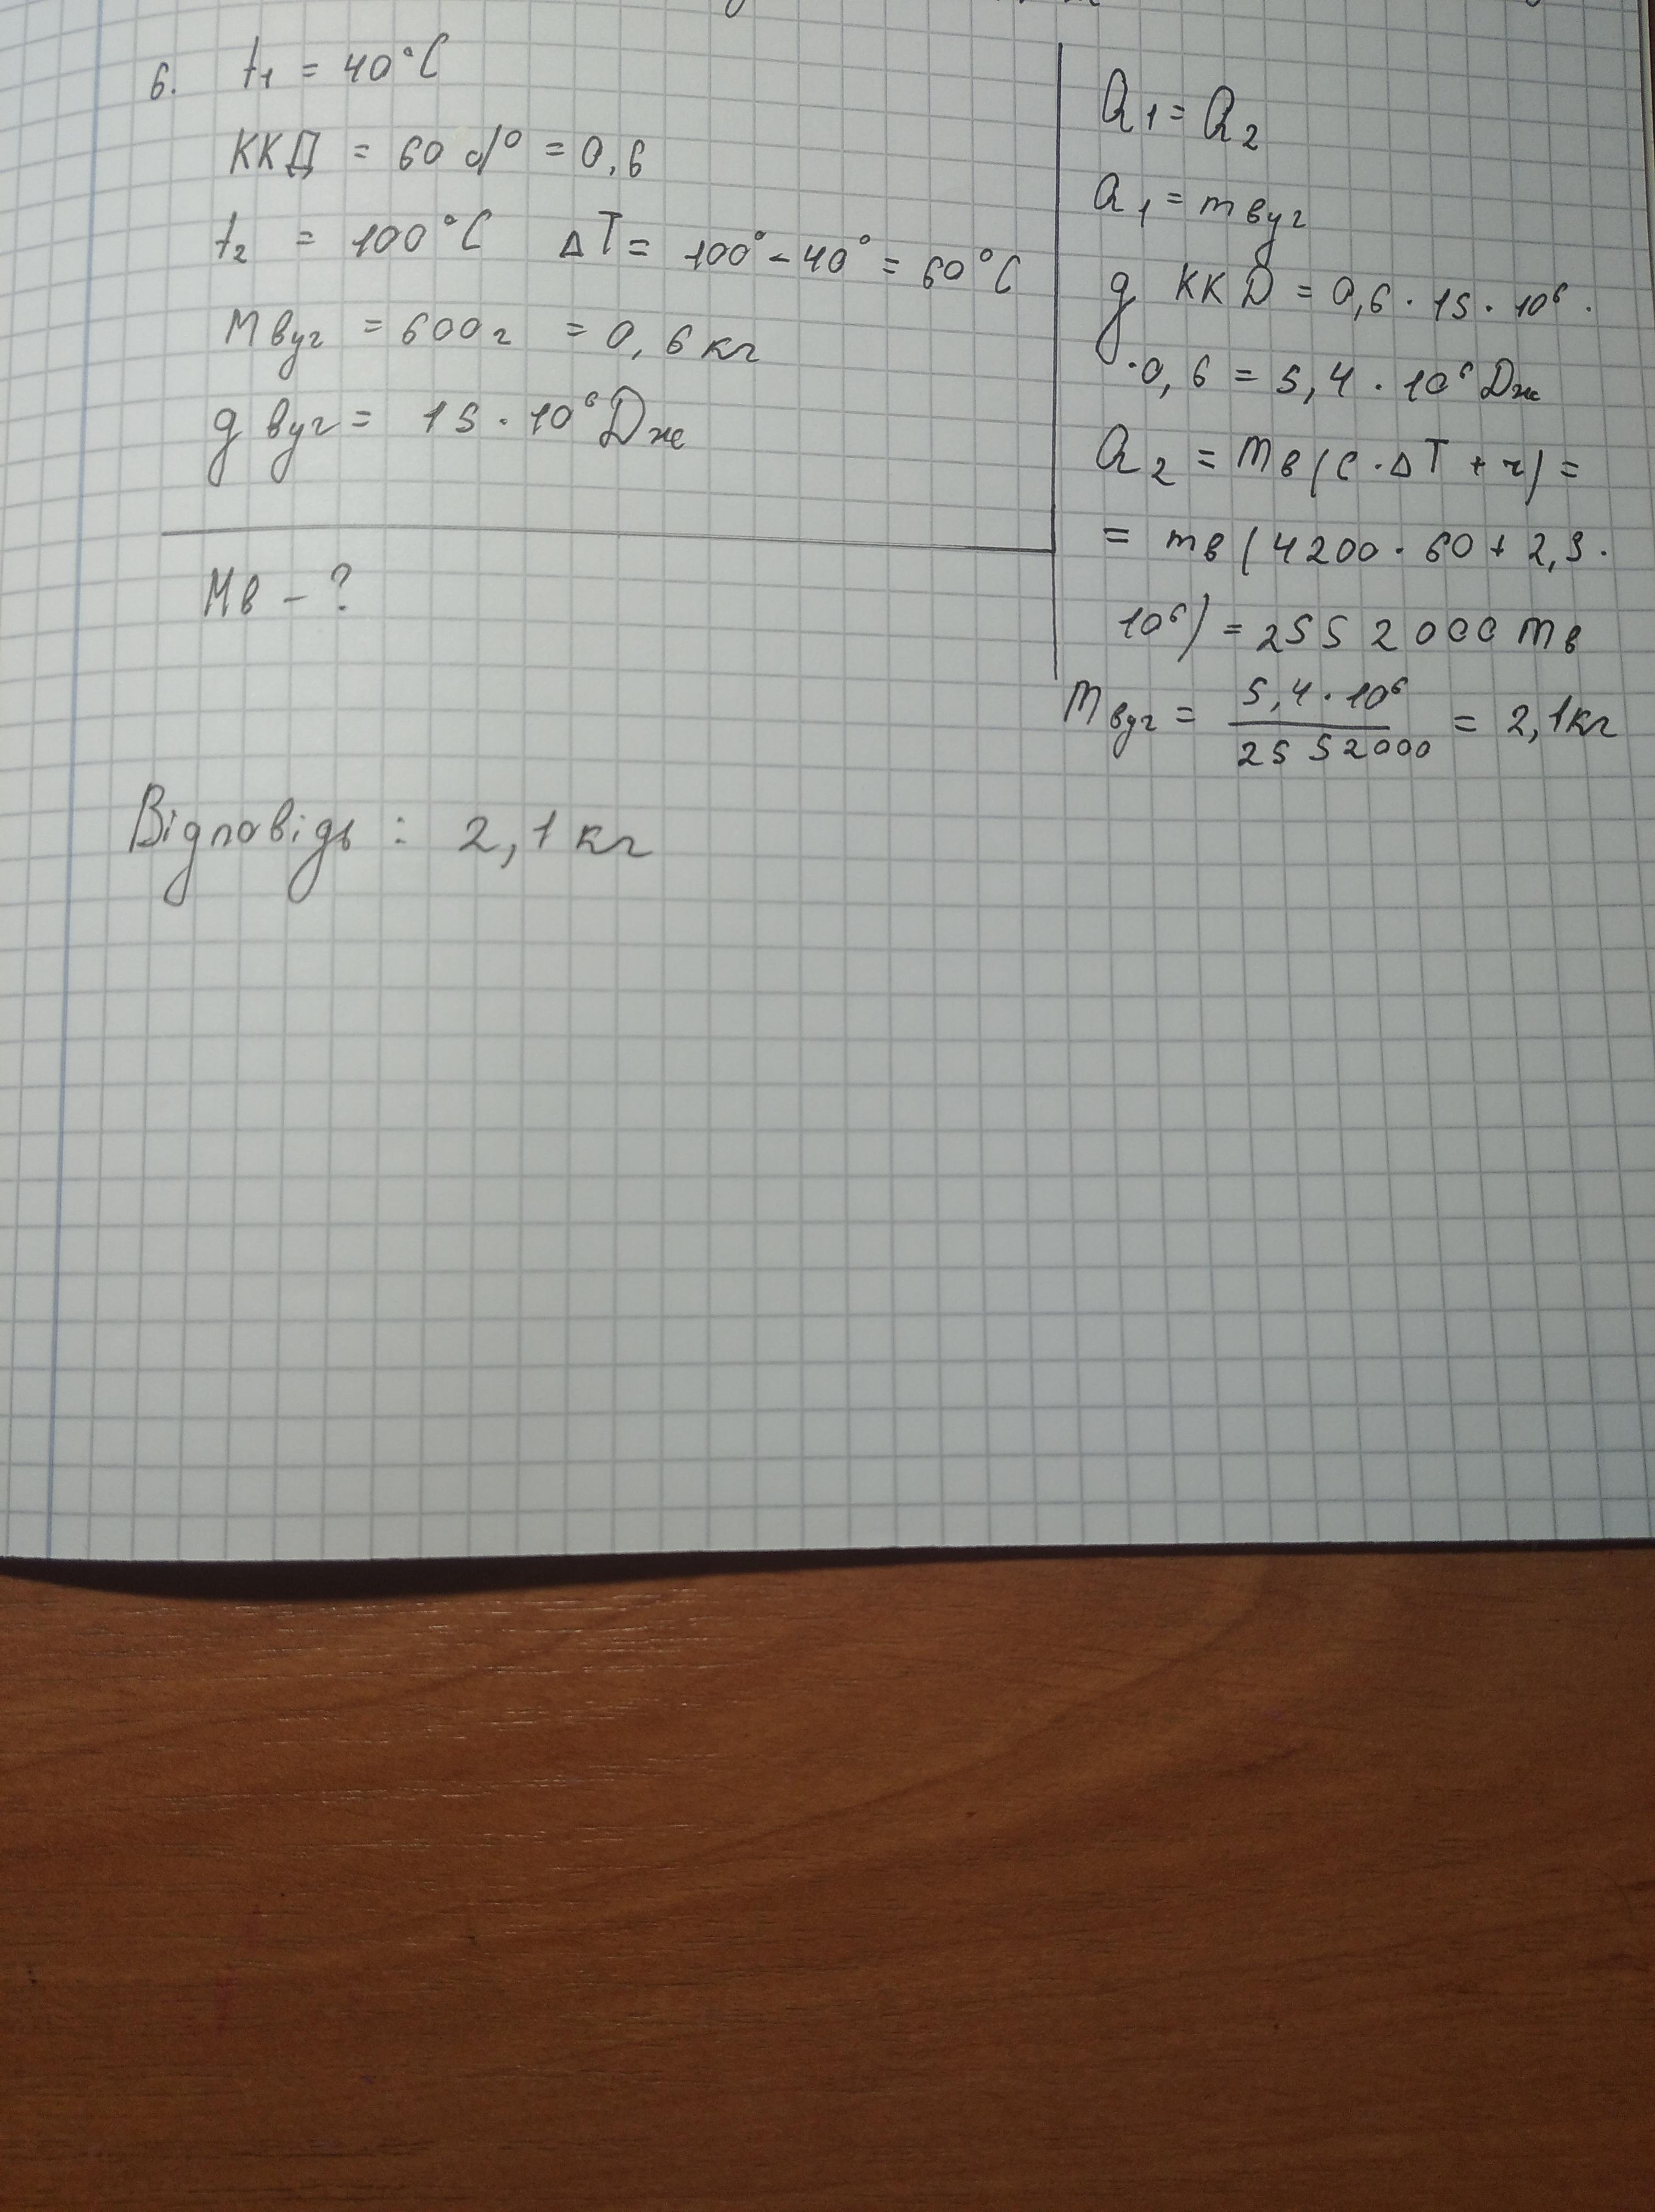 6. t₁ = 40°C
ККД = 60 % = 0,6
t₂ = 100°C ΔT = 100° - 40° = 60°C
Mвуг = 600г = 0,6 кг
g вуг = 15 · 10⁶ Дж
Mв - ?
Q₁ = Q₂
Q₁ = mвуг
g ККD = 0,6 · 15 · 10⁶ ·
· 0,6 = 5,4 · 10⁶ Дж
Q₂ = mв (C · ΔT + r) =
= mв (4200 · 60 + 2,3 ·
10⁶) = 2552000 mв
mвуг = 5,4 · 10⁶ / 2552000 = 2,1кг
Відповідь : 2,1 кг